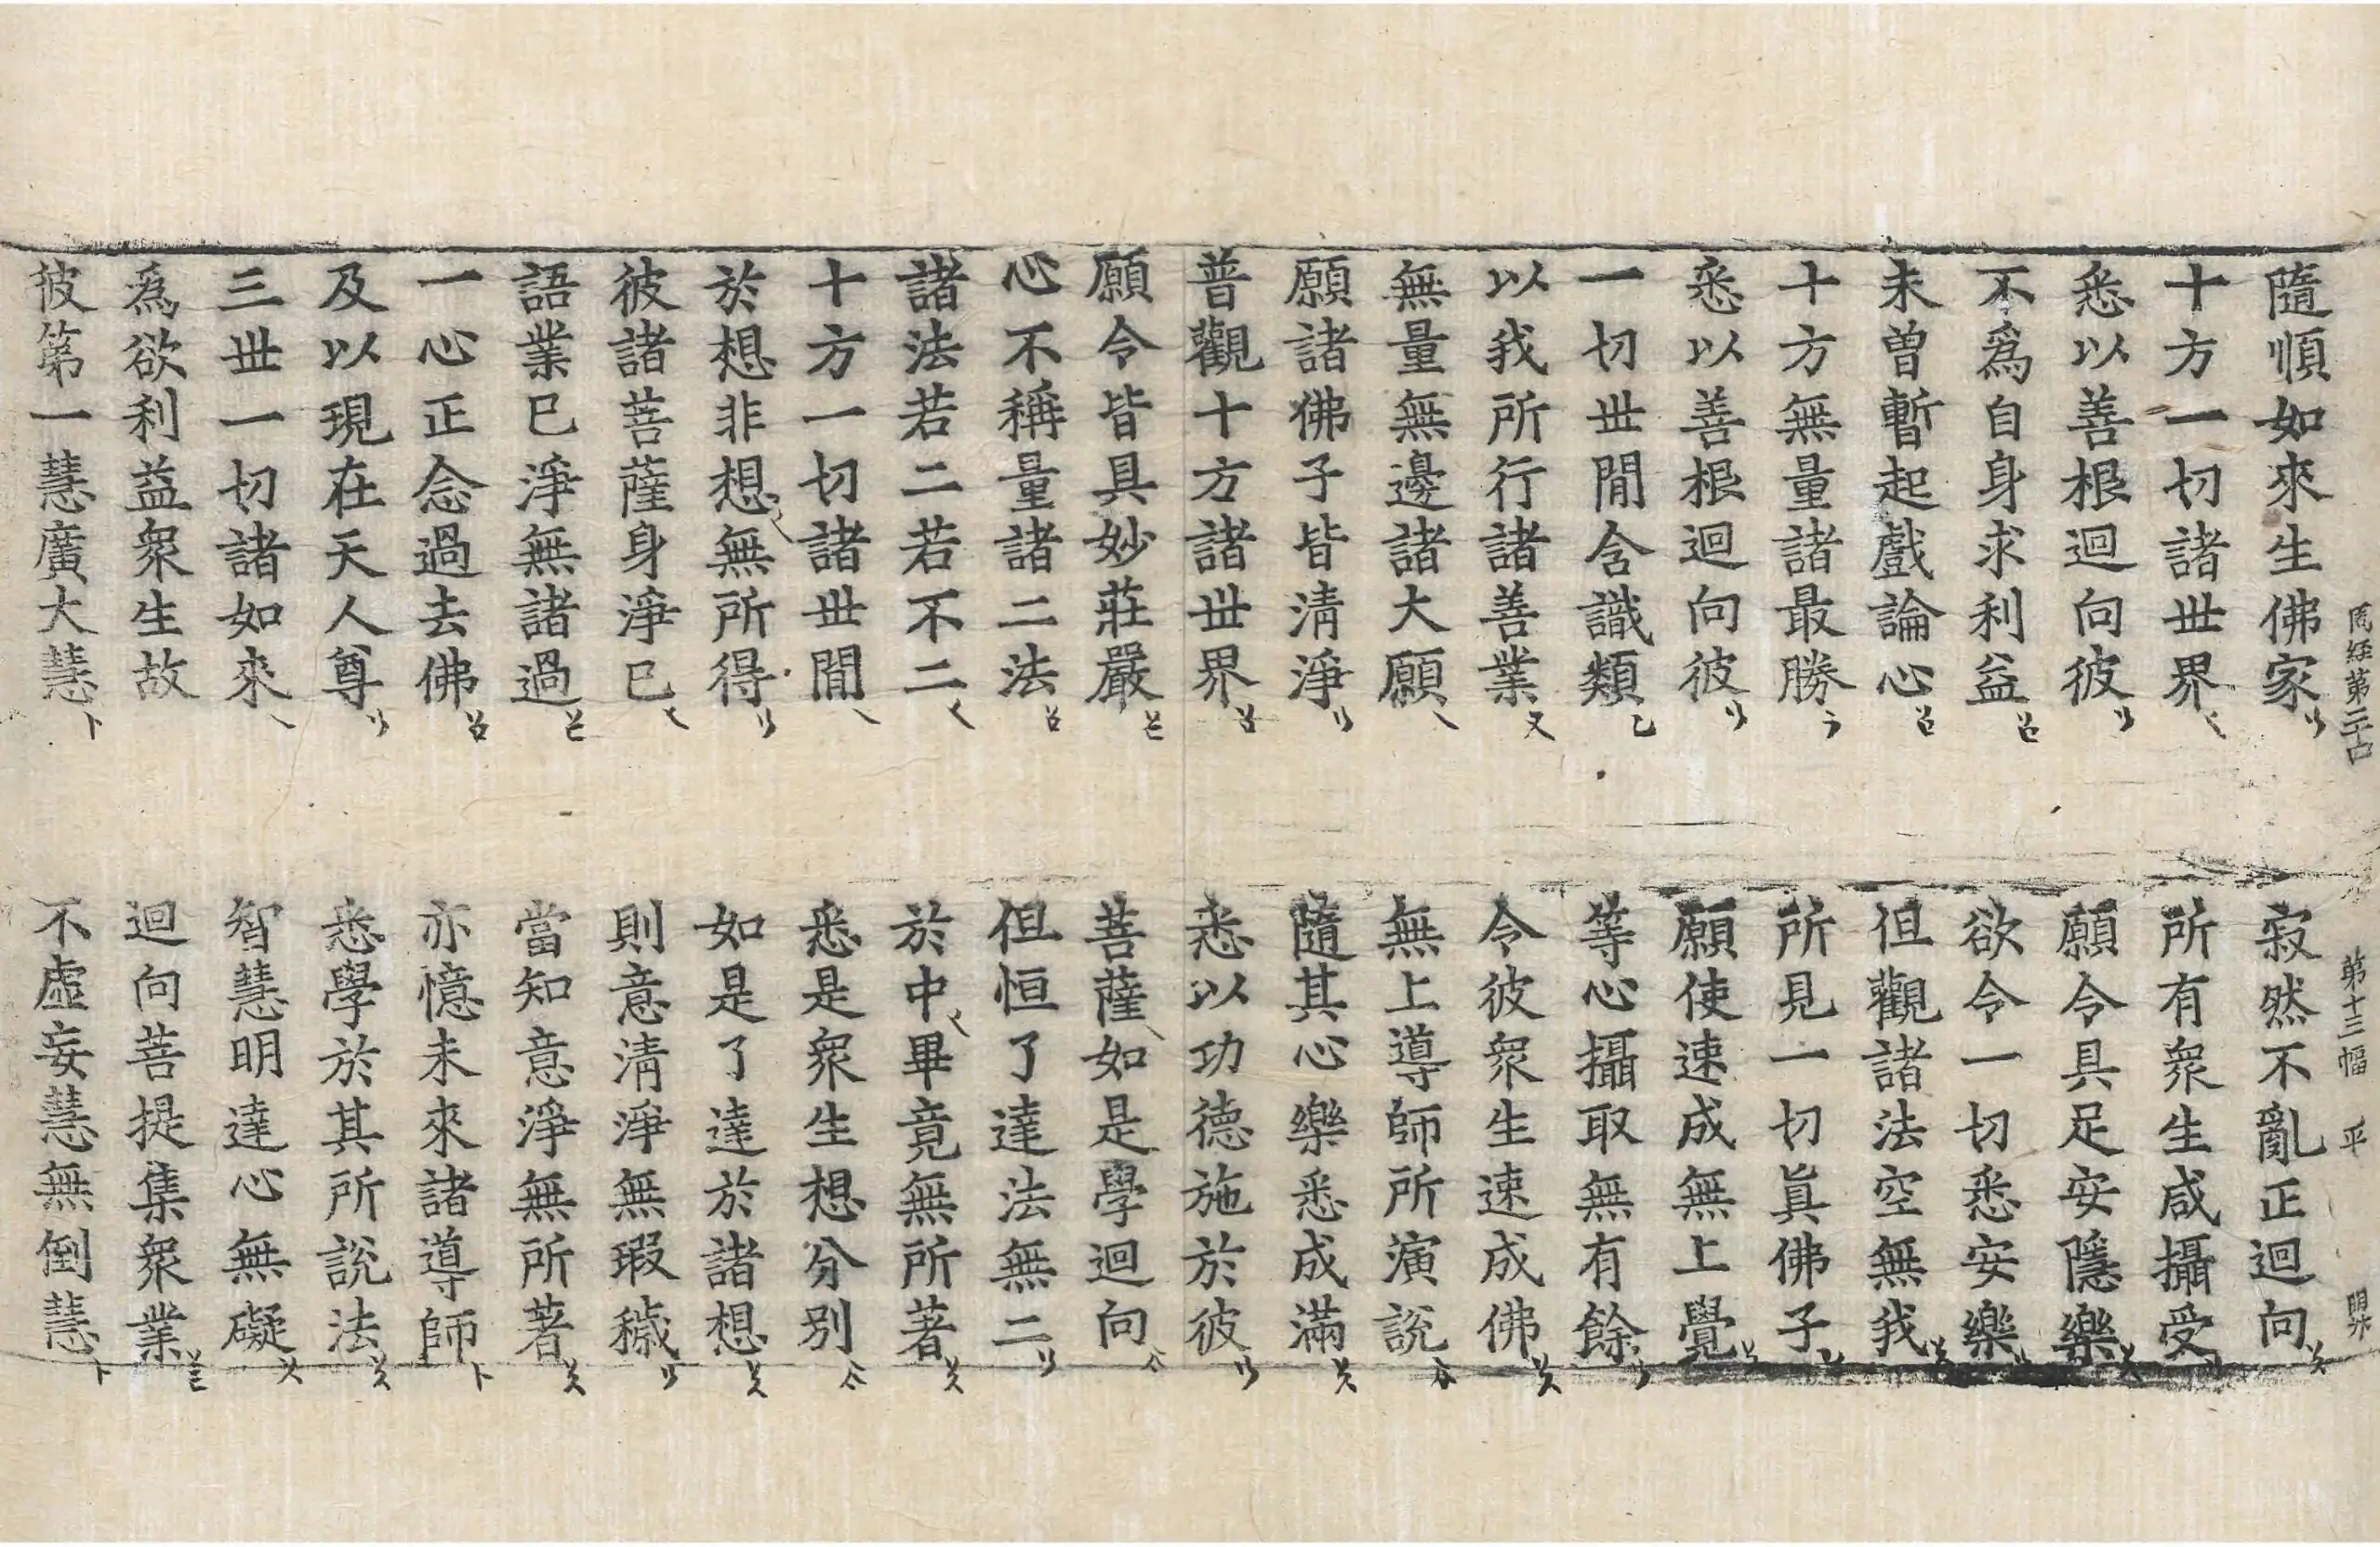 周経第二十四 第十三幅
隨順如來生佛家 寂然不亂正迴向
十方一切諸世界 所有衆生咸攝受
悉以善根迴向彼 願令具足安隱樂
不爲自身求利益 欲令一切悉安樂
未曾暫起戲論心 但觀諸法空無我
十方無量諸最勝 所見一切眞佛子
悉以善根迴向彼 願使速成無上覺
一切世間含識類 等心攝取無有餘
以我所行諸善業 令彼衆生速成佛
無量無邊諸大願 無上導師所演說
願諸佛子皆淸淨 隨其心樂悉成滿
普觀十方諸世界 悉以功德施於彼
願令皆具妙莊嚴 菩薩如是學迴向
心不稱量諸二法 但恒了達法無二
諸法若二若不二 於中畢竟無所著
十方一切諸世間 悉是衆生想分別
於想非想無所得 如是了達於諸想
彼諸菩薩身淨已 則意淸淨無瑕穢
語業已淨無諸過 當知意淨無所著
一心正念過去佛 亦憶未來諸導師
及以現在天人尊 悉學於其所說法
三世一切諸如來 智慧明達心無礙
爲欲利益衆生故 迴向菩提集衆業
彼第一慧廣大慧 不虛妄慧無倒慧